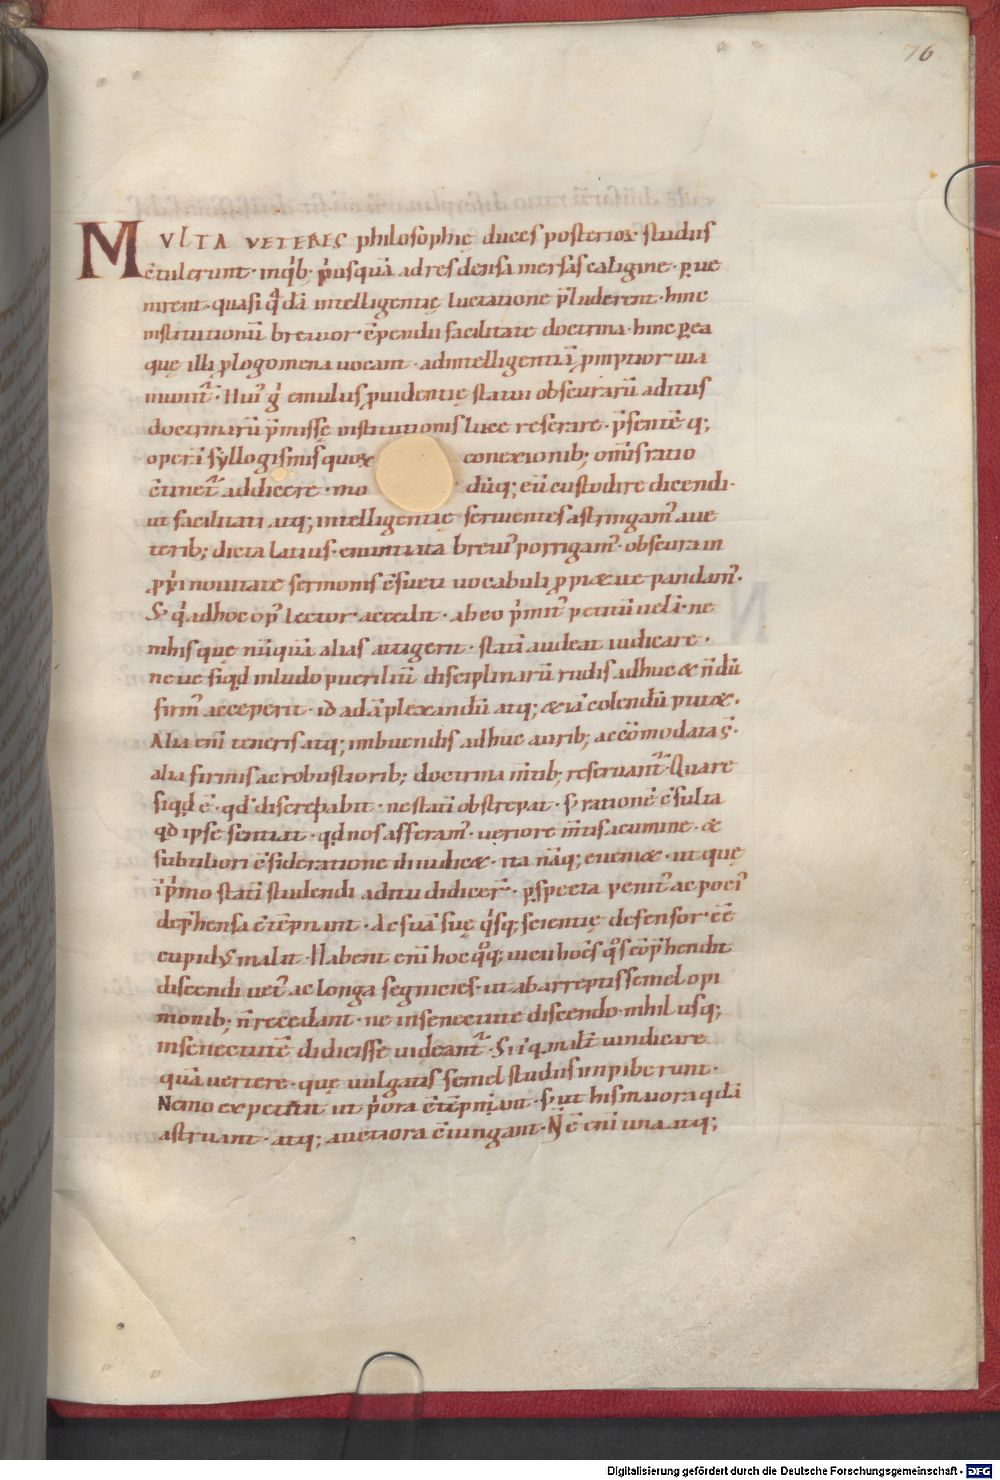 76
MVLTA VETERES philosophię duces posterior̄ studiis
c̄tulerunt · inq'b; p'usquā ad res densa mersas caligine · ꝑue
nirent · quasi q̄dā intelligentię luctatione p̄luderent · hinc
institutionū brevior · c̄pendii facilitate doctrina · hinc ꝑea
quę illi ꝓlogomena uocant · adintelligentiā ꝓmptior uia
munit̄ · Hui' g' emulus ꝓuidentię statui obscurarū aditus
doctrinarū p̄missę institutionis luce reserare · p̄sentēq;
operi syllogismis quox conexionib; om̄is ratio
c̄tinet̄ addicere · mo dūq; eū custodire dicendi ·
ut facilitati atq; intelligentię seruientes astringam' aue
terib; dicta latius · enuntiata breui' porrigam' · obscura in
ꝓp'i nouitate sermonis c̄sueti uocabuli ꝓpriæue pandam' ·
S; q' adhoc op' lector accedit · abeo p'mit' petitū uelī · ne
inhis quę nūquā alias attigerit · statī audeat iudicare ·
neue siqd inludo pueriliū disciplinarū rudis adhuc & n̄dū
firm' acceperit · id adāplexandū atq; & iā colendū putæ ·
Alia enī teneris atq; imbuendis adhuc aurib; accōmodata s̄ ·
alia firmis ac robustiorib; doctrina m̄tib; reseruant̄ · Quare
siqd ē · qd discrepabit · ne statī obstrepat · s; rationē c̄sulta
qd ipse sentiat · qd nos afferam' · ueriore m̄tis acumine · &
subtiliori c̄sideratione diiudicæ · ita nāq; eueniæ · ut quę
īp'mo statī studendi aditu didicer̄ · ꝑspecta penit' ac poci'
dep̄hensa c̄tēpnant · Ac suā suę q'sq; scientię defensor · ēē
cupidus malit · Habent enī hoc qoq; uicii hoēs qos cōp̄hendit
discendi uet' ac longa segnicies · ut ab arreptis semel opi
nionib; n̄ recedant · ne insenectute discendo nihil usq;
insenectutē didicisse uideant̄ · S; iiq malīt uindicare
quā uertere · quę uulgatis semel studiis inpiberunt ·
Nemo expetunt ut p'ora c̄tēpniant · s; ut his maiora q dā
astruant · atq; auctiora c̄iungant · N ē enī una atq;
Digitalisierung gefördert durch die Deutsche Forschungsgemeinschaft - DFG